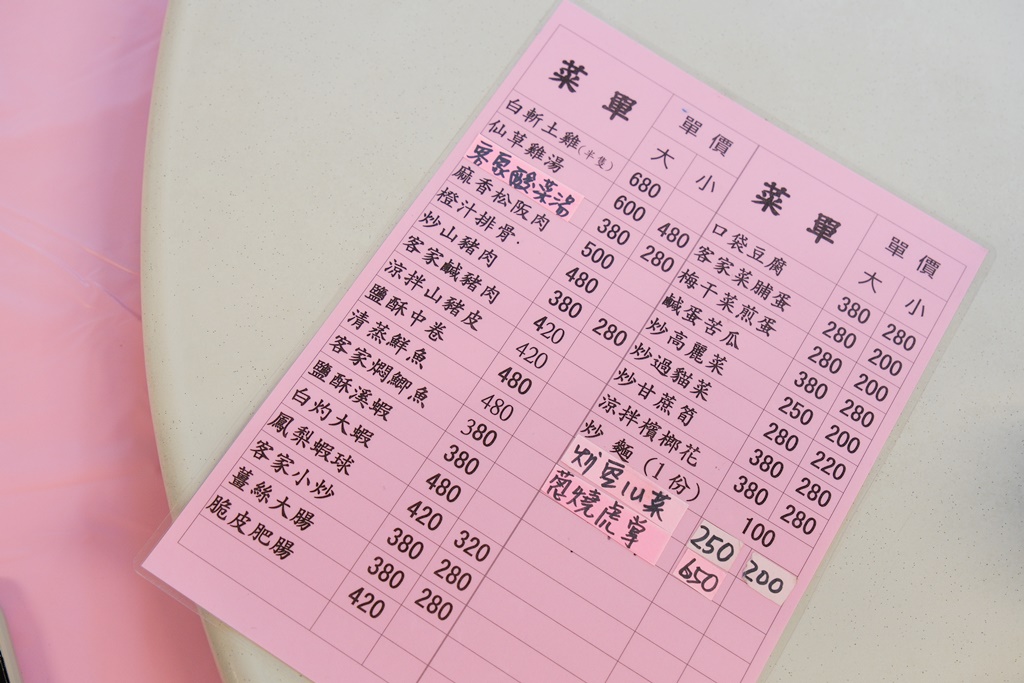 菜單 單價
大 小
白斬土雞(半隻) 680
仙草雞湯 600 480
客家酸菜湯 380 280
麻香松阪肉 500
橙汁排骨 480
炒山豬肉 380 280
客家鹹豬肉 420
涼拌山豬皮 420
鹽酥中卷 480
清蒸鮮魚 480
客家燜鯽魚 380
鹽酥溪蝦 380
白灼大蝦 480
鳳梨蝦球 420 320
客家小炒 380 280
薑絲大腸 380 280
脆皮肥腸 420
菜單 單價
大 小
口袋豆腐 380 280
客家菜脯蛋 280 200
梅干菜煎蛋 280 200
鹹蛋苦瓜 380 280
炒高麗菜 250 200
炒過貓菜 280 220
炒甘蔗筍 380 280
涼拌檳榔花 380 280
炒麵(1份) 100
250 200
蔥燒虎掌 650